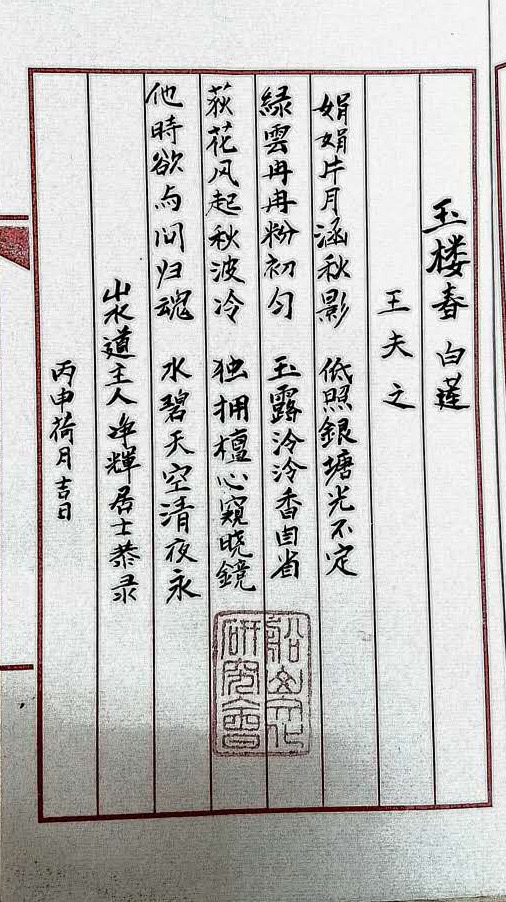 玉楼春 白蓮
王夫之
娟娟片月涵秋影 低照銀塘光不定
緑雲冉冉粉初匀 玉露泠泠香自省
荻花风起秋波冷 独拥檀心窥晓鏡
他時欲与问归魂 水碧天空清夜永
山水道主人净輝居士恭录
丙申荷月吉日
船山文化
研究會